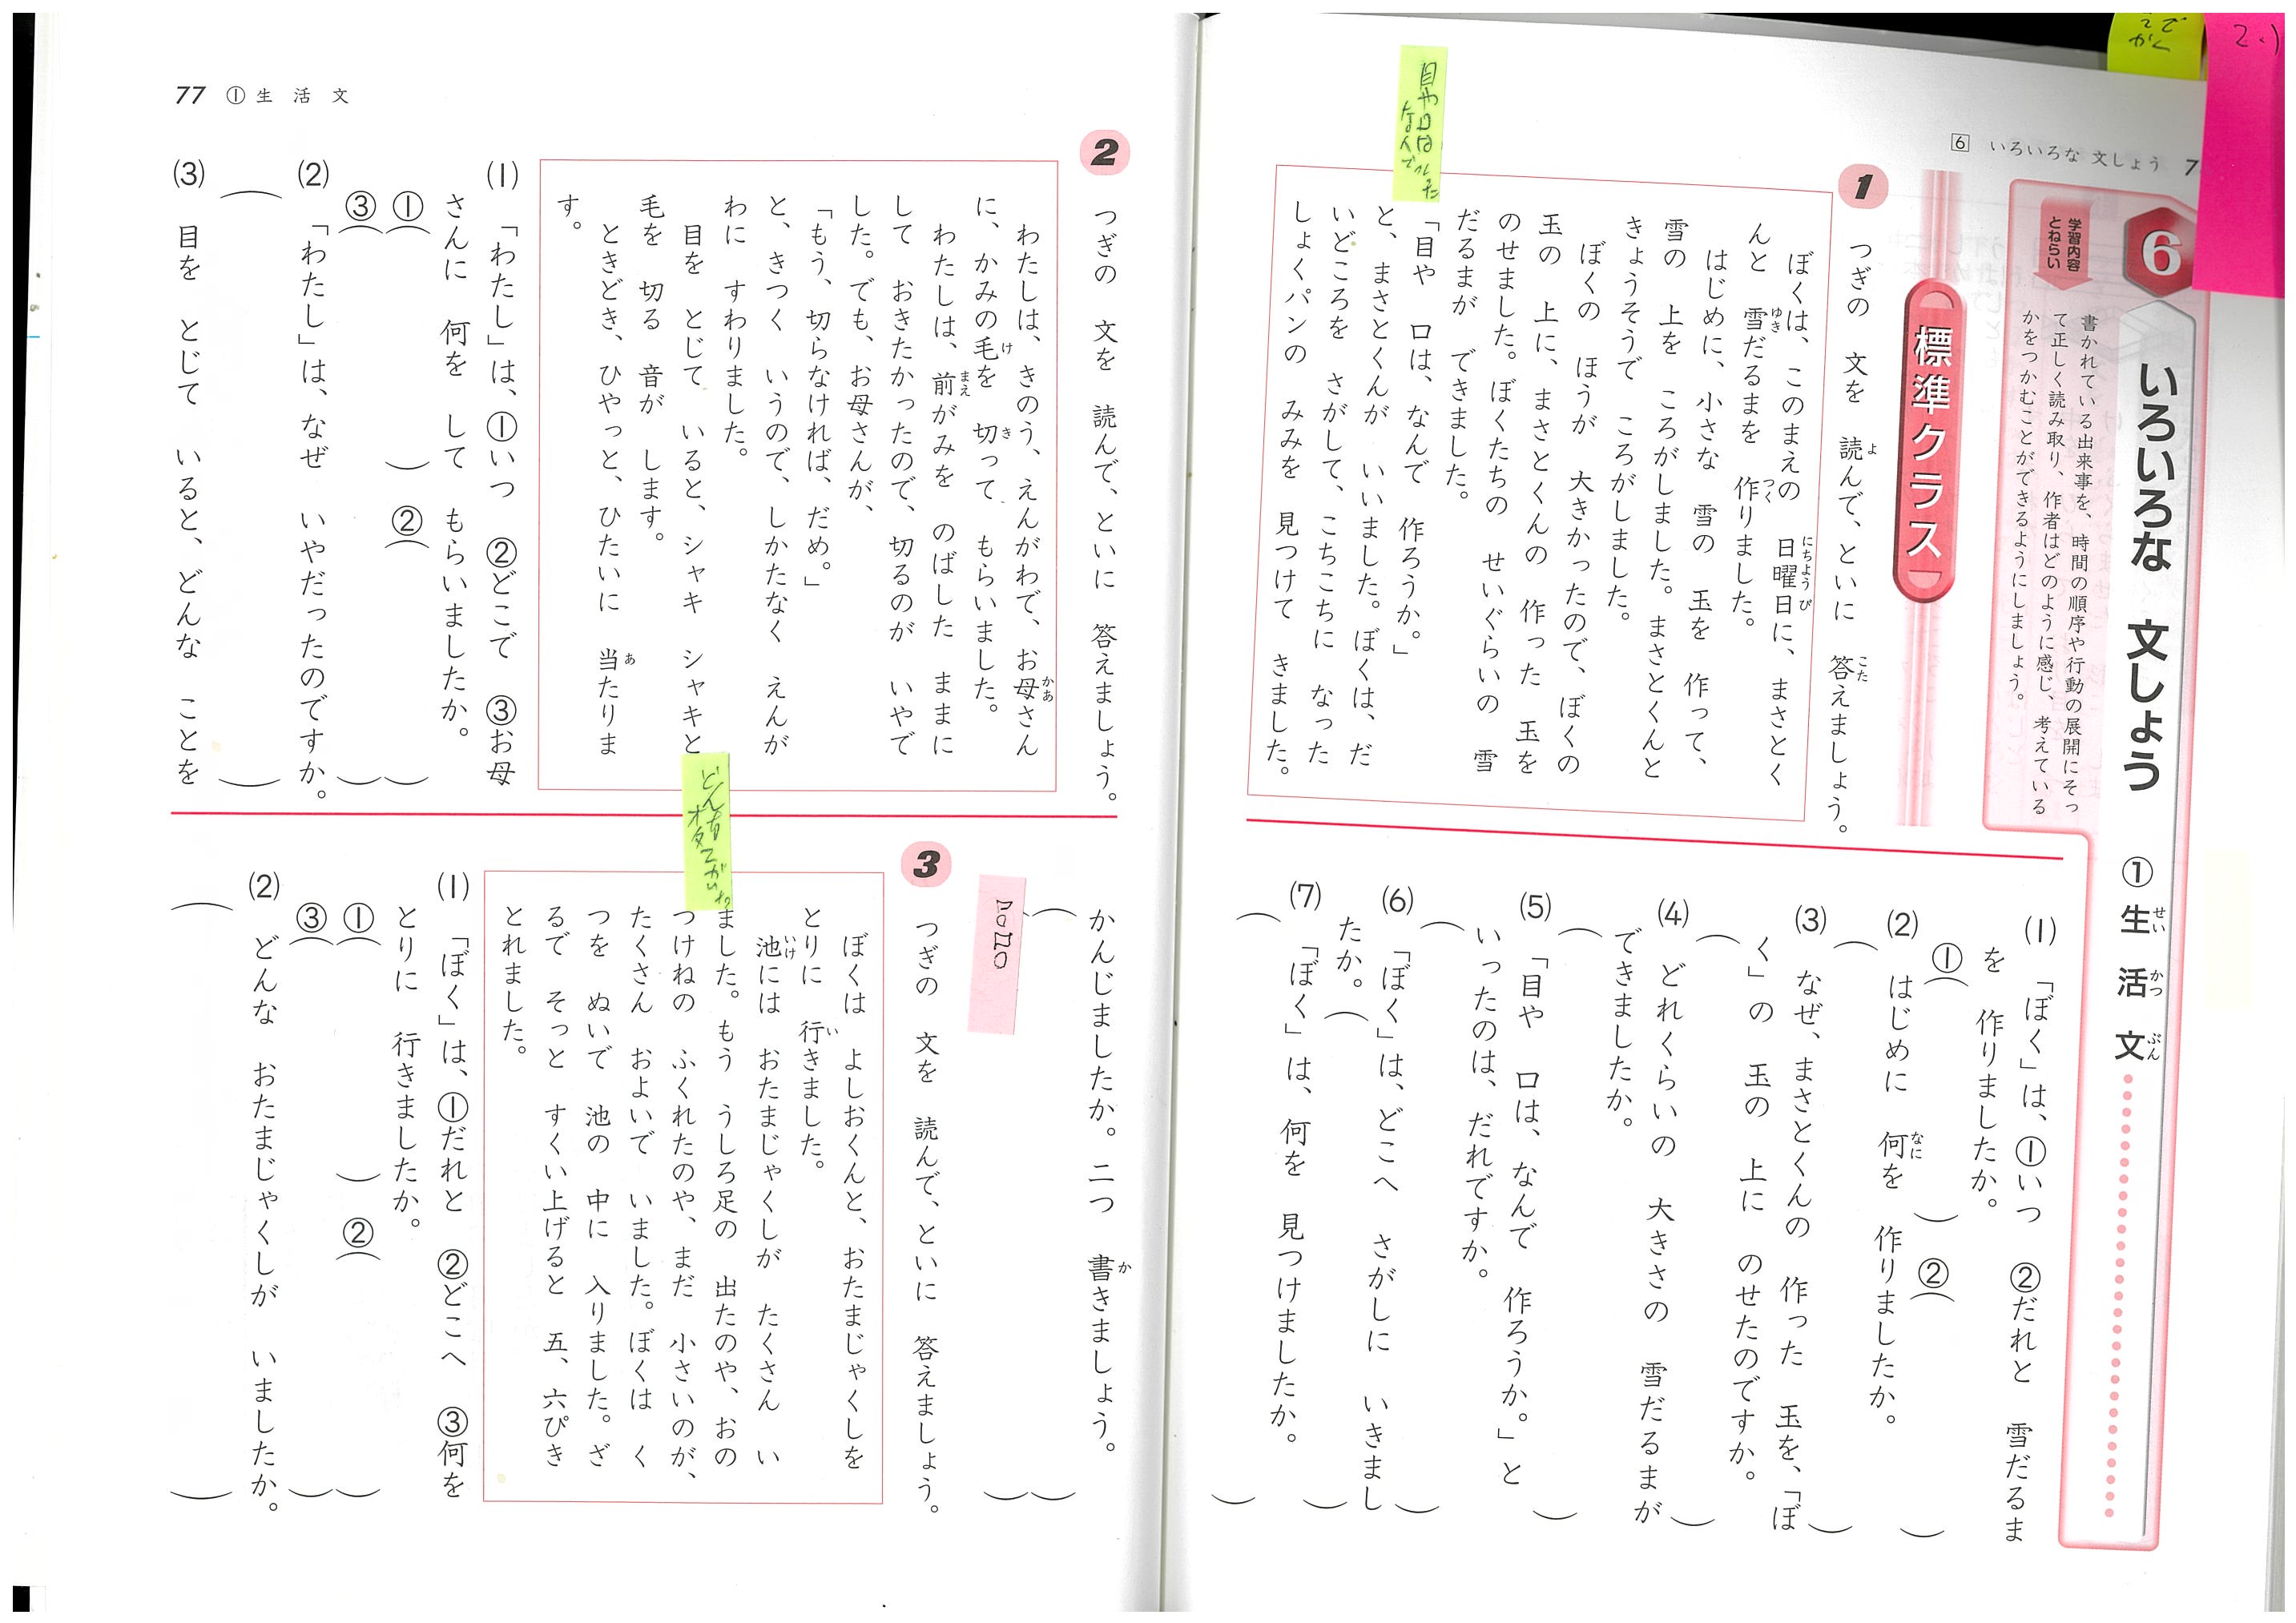 6 いろいろな 文しょう 7
6 いろいろな 文しょう ①生活文
せい かつ ぶん
学習内容とねらい
書かれている出来事を、時間の順序や行動の展開にそっ
て正しく読み取り、作者はどのように感じ、考えている
かをつかむことができるようにしましょう。
標準クラス
1 つぎの 文を 読んで、といに 答えましょう。
よ こた
ぼくは、このまえの 日曜日に、まさとく
にちようび
んと 雪だるまを 作りました。
ゆき つく
はじめに、小さな 雪の 玉を 作って、
雪の 上を ころがしました。まさとくんと
きょうそうで ころがしました。
ぼくの ほうが 大きかったので、ぼくの
玉の 上に、まさとくんの 作った 玉を
のせました。ぼくたちの せいぐらいの 雪
だるまが できました。
「目や 口は、なんで 作ろうか。」
と、まさとくんが いいました。ぼくは、だ
いどころを さがして、こちこちに なった
しょくパンの みみを 見つけて きました。
目や口は
なんで
(1) 「ぼく」は、①いつ ②だれと 雪だるま
を 作りましたか。
①( ) ②( )
(2) はじめに 何を 作りましたか。
なに
( )
(3) なぜ、まさとくんの 作った 玉を、「ぼ
く」の 玉の 上に のせたのですか。
( )
(4) どれくらいの 大きさの 雪だるまが
できましたか。
( )
(5) 「目や 口は、なんで 作ろうか。」と
いったのは、だれですか。
( )
(6) 「ぼく」は、どこへ さがしに いきまし
たか。( )
(7) 「ぼく」は、何を 見つけましたか。
( )
77 ①生活文
2 つぎの 文を 読んで、といに 答えましょう。
わたしは、きのう、えんがわで、お母さん
かあ
に、かみの毛を 切って もらいました。
け き
わたしは、前がみを のばした ままに
まえ
して おきたかったので、切るのが いやで
した。でも、お母さんが、
「もう、切らなければ、だめ。」
と、きつく いうので、しかたなく えんが
わに すわりました。
目を とじて いると、シャキ シャキと
毛を 切る 音が します。
ときどき、ひやっと、ひたいに 当たりま
あ
す。
(1) 「わたし」は、①いつ ②どこで ③お母
さんに 何を して もらいましたか。
①( ) ②( )
③( )
(2) 「わたし」は、なぜ いやだったのですか。
( )
(3) 目を とじて いると、どんな ことを
かんじましたか。二つ 書きましょう。
か
( )
( )
3 つぎの 文を 読んで、といに 答えましょう。
ぼくは よしおくんと、おたまじゃくしを
とりに 行きました。
い
池には おたまじゃくしが たくさん い
いけ
ました。もう うしろ足の 出たのや、おの
つけねの ふくれたのや、まだ 小さいのが、
たくさん およいで いました。ぼくは く
つを ぬいで 池の 中に 入りました。ざ
るで そっと すくい上げると 五、六ぴき
とれました。
(1) 「ぼく」は、①だれと ②どこへ ③何を
とりに 行きましたか。
①( ) ②( )
③( )
(2) どんな おたまじゃくしが いましたか。
( )